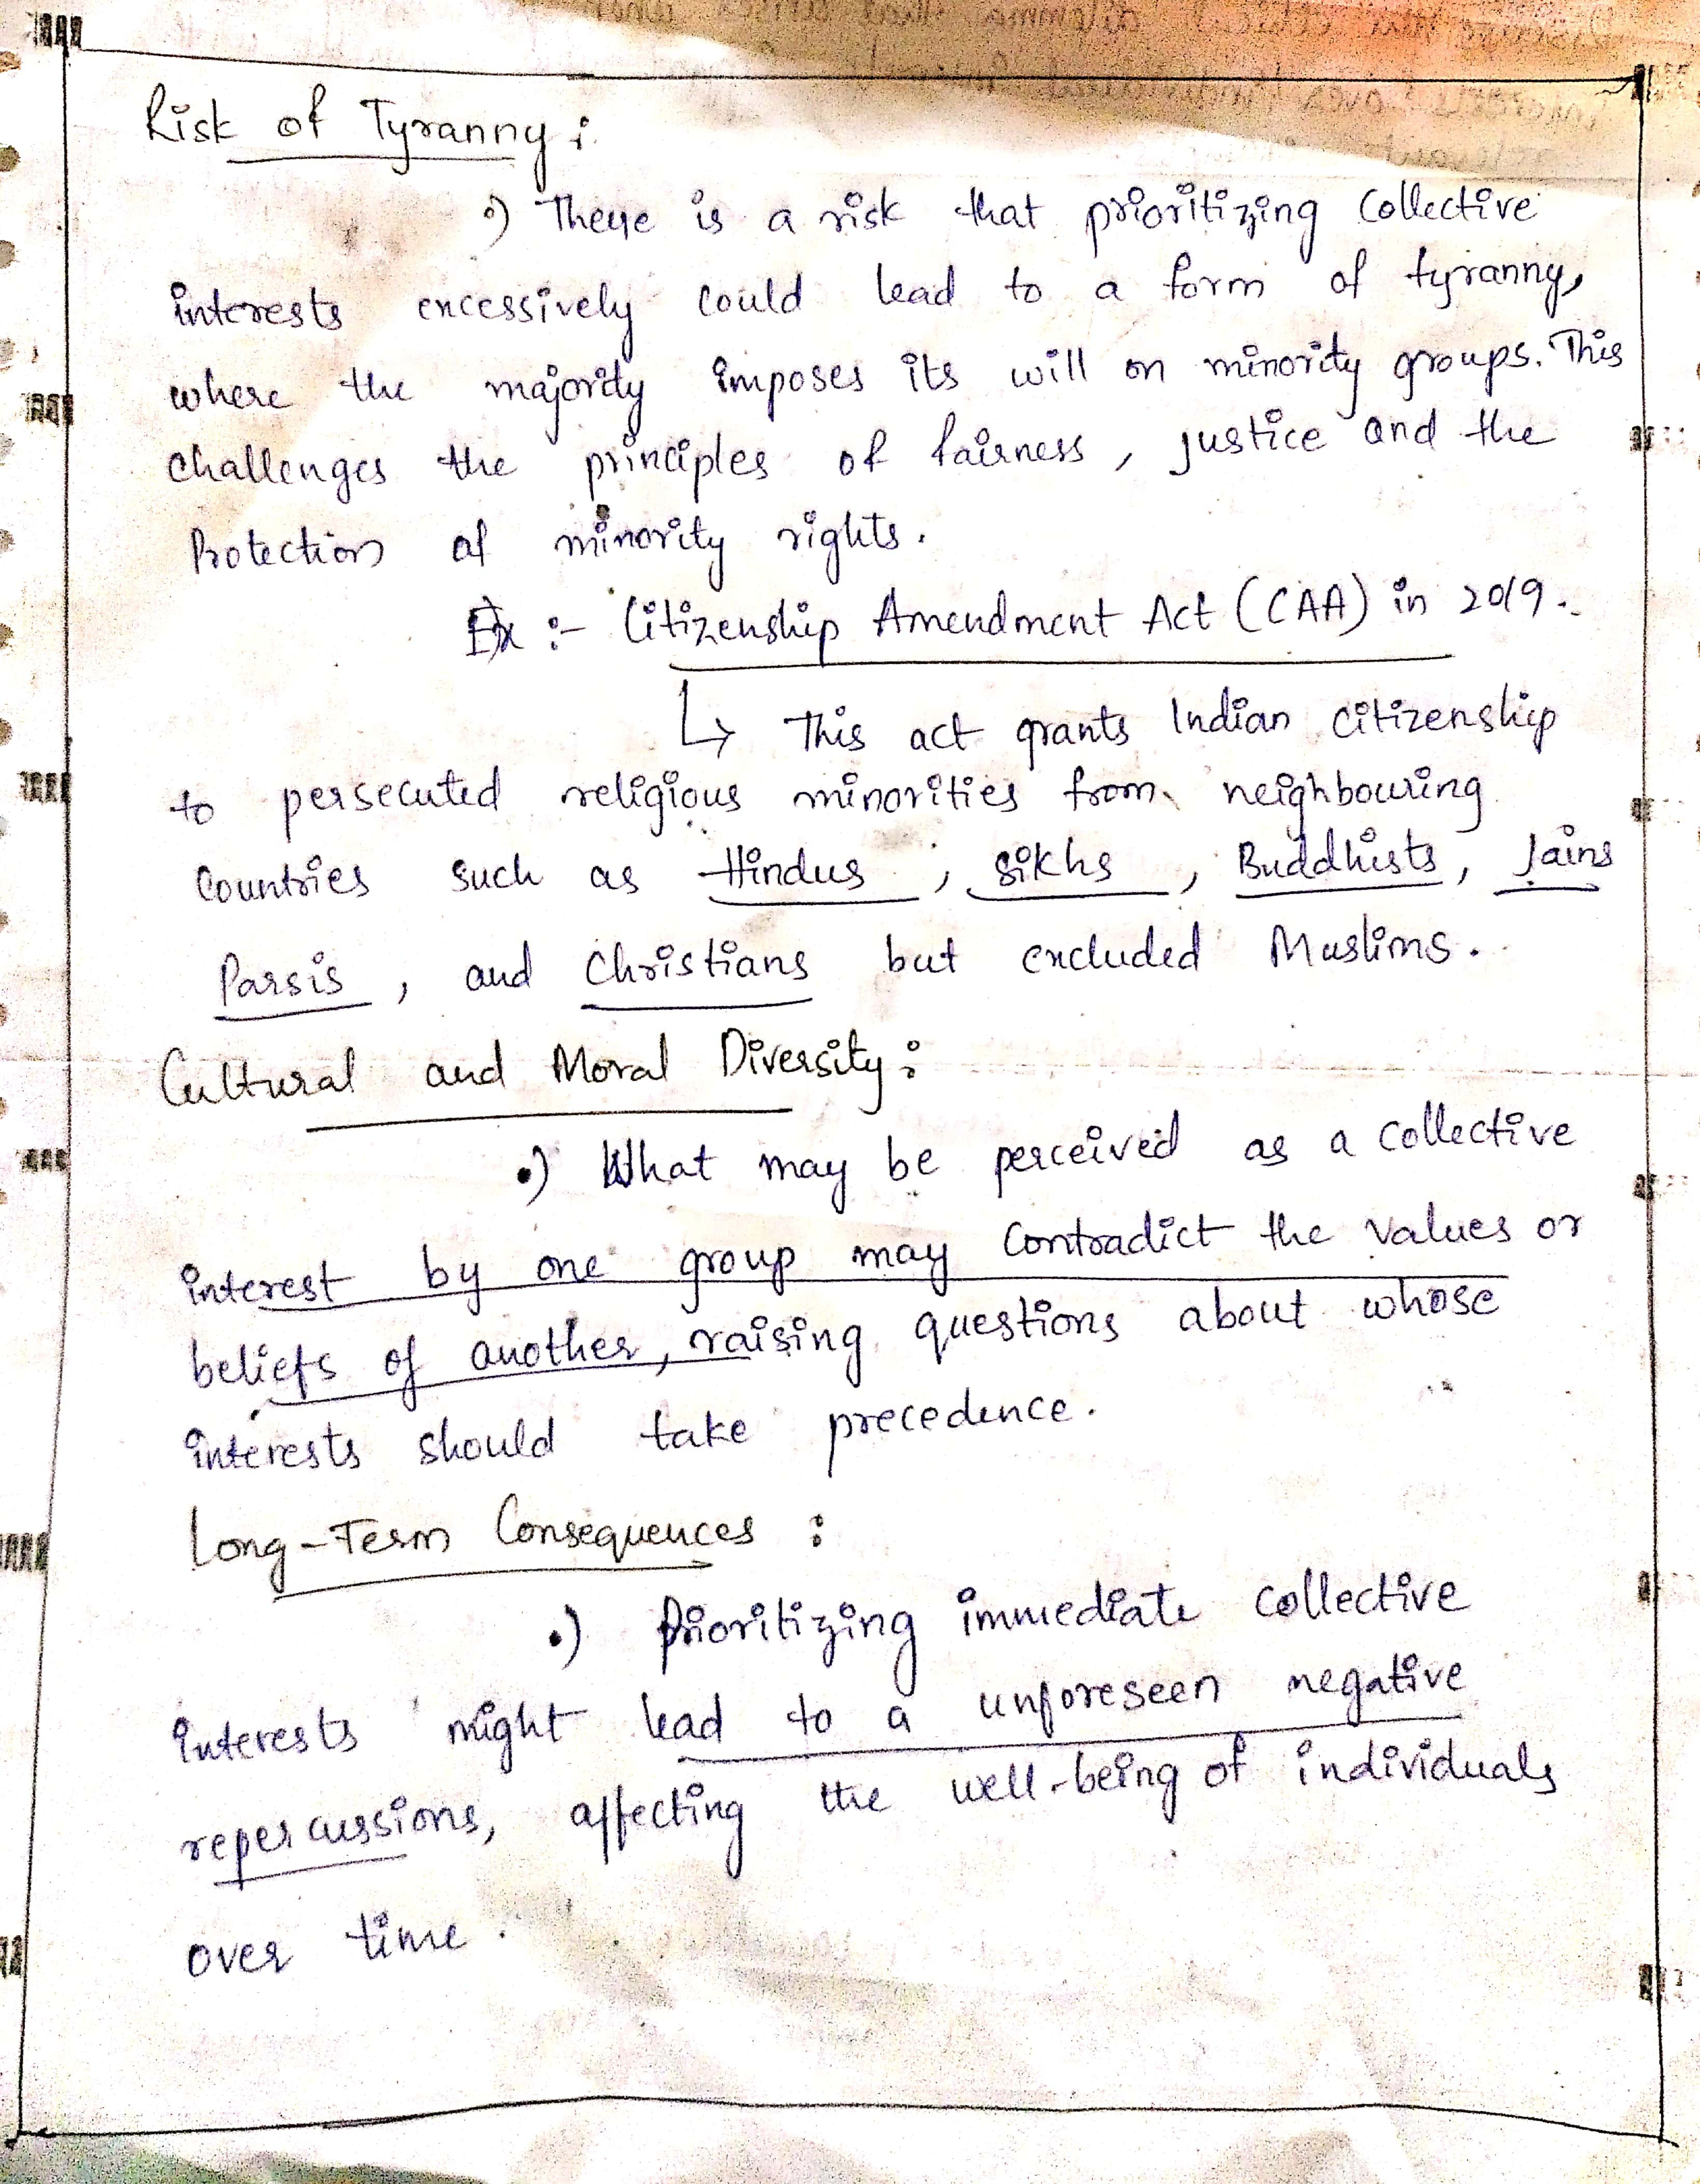 Risk of Tyranny :
•) There is a risk that prioritizing collective
interests excessively could lead to a form of tyranny,
where the majority imposes its will on minority groups. This
challenges the principles of fairness, justice and the
Protection of minority rights.
Ex :- Citizenship Amendment Act (CAA) in 2019.
↳ This act grants Indian citizenship
to persecuted religious minorities from neighbouring
Countries such as Hindus, Sikhs, Buddhists, Jains
Parsis, and Christians but excluded Muslims.
Cultural and Moral Diversity :
•) What may be perceived as a collective
interest by one group may contradict the values or
beliefs of another, raising questions about whose
interests should take precedence.
Long-Term Consequences :
•) Prioritizing immediate collective
interests might lead to a unforeseen negative
repercussions, affecting the well-being of individuals
over time.